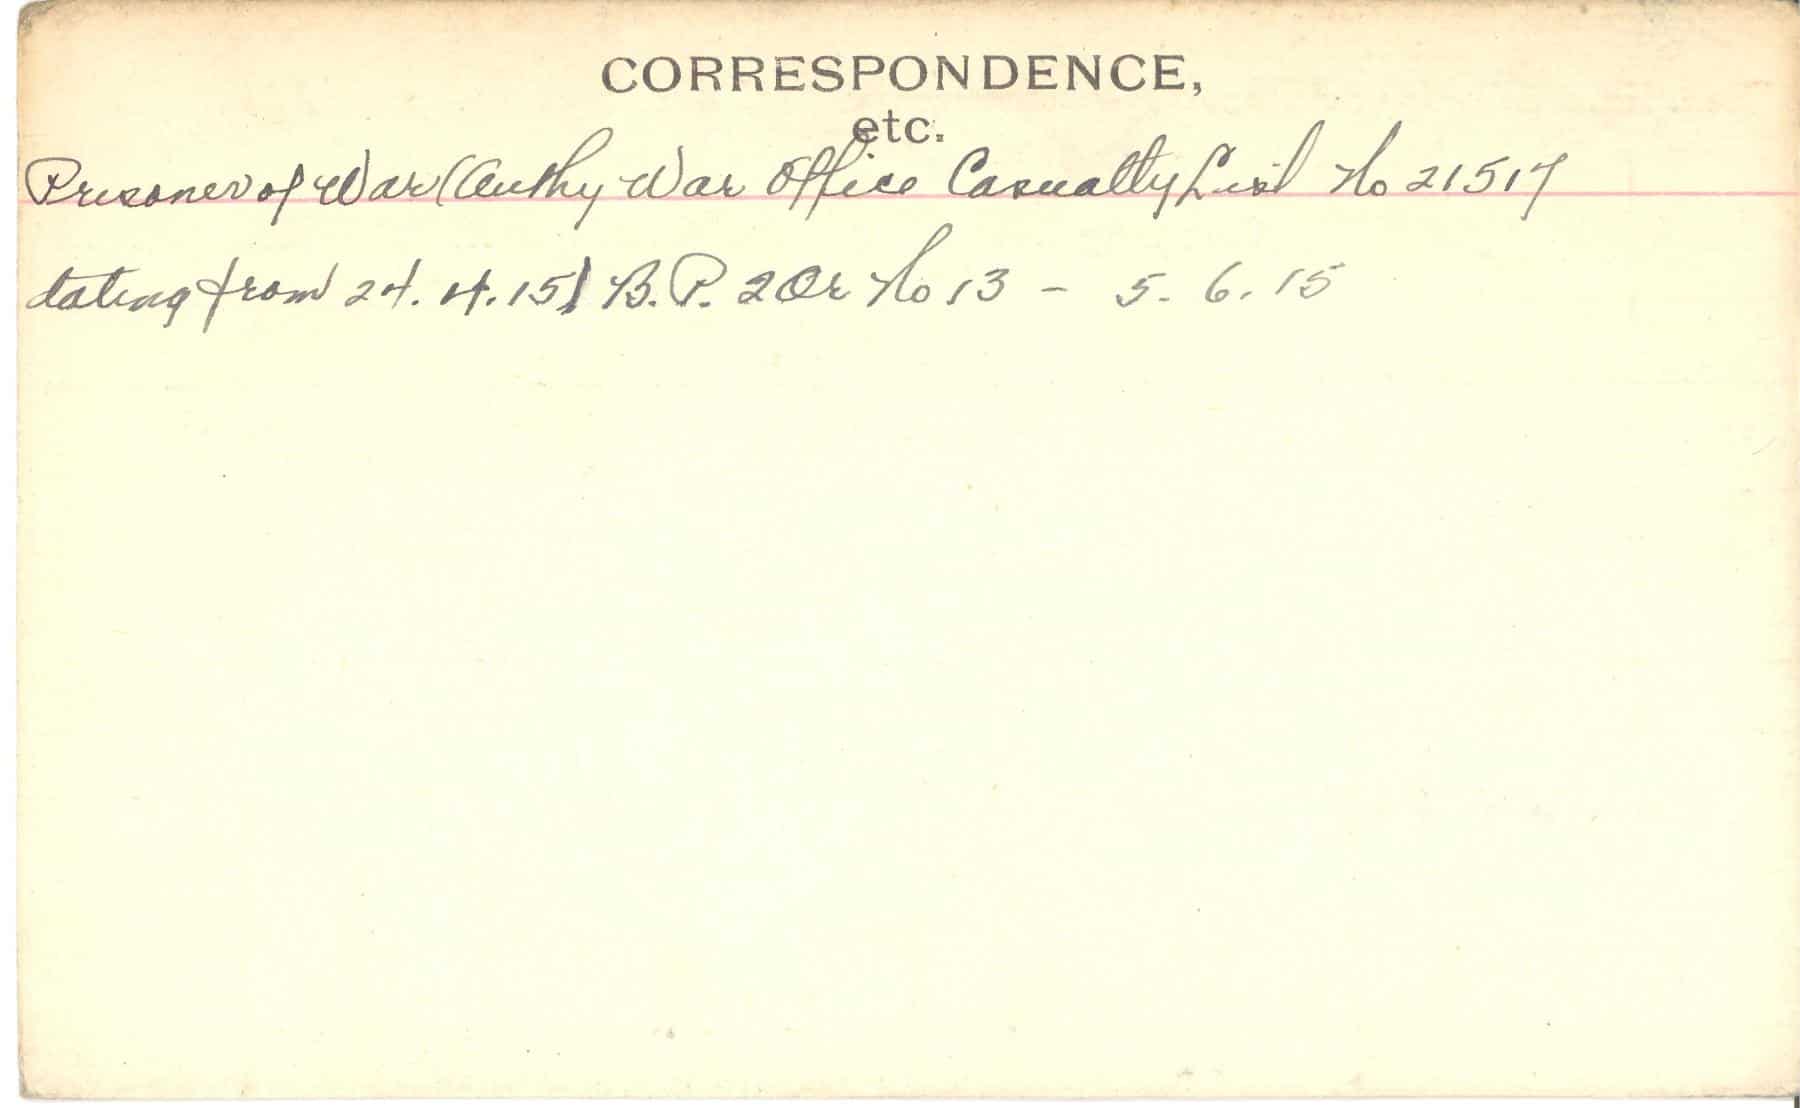 CORRESPONDENCE,
etc.
Prisoner of War (Authy War Office Casualty List No 21517
dating from 24.4.15) B.P. 2 Or No 13 - 5.6.15